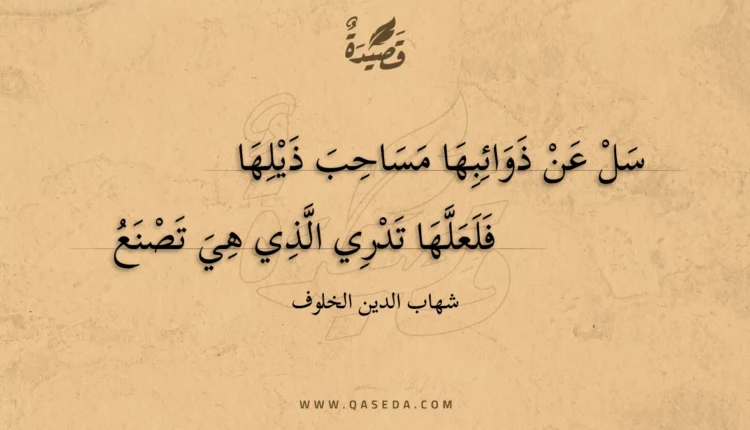 قَصِيْدَةٌ
سَلْ عَنْ ذَوَائِبِهَا مَسَاحِبَ ذَيْلِهَا
فَلَعَلَّهَا تَدْرِي الَّذِي هِيَ تَصْنَعُ
شهاب الدين الخلوف
WWW.QASEDA.COM